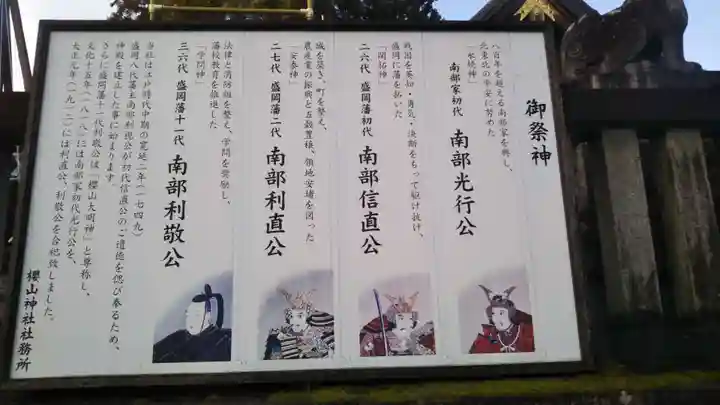 御祭神
八百年を越える南部家を興し、
北東北の平安に努めた
南部家初代 南部光行公
戦国を英知・勇気・決断をもって駆け抜け、
盛岡に藩を拓いた
「開拓神」
二六代 盛岡藩初代 南部信直公
城を築き、町を整え、
農産業の振興と五穀豊穣、領地安堵を図った
「安泰神」
二七代 盛岡藩二代 南部利直公
法律と消防組を整え、学問を奨励し、
藩校教育を推進した
「学問神」
三六代 盛岡藩十一代 南部利敬公
当社は江戸時代中期の寛延二年(一七四九)
盛岡八代藩主南部利視公が初代信直公のご遺徳を偲び奉るため、
神殿を建立した事に始まります
さらに盛岡藩十一代利敬公は「櫻山大明神」と尊称し、
文化十五年(一八一八)には南部家初代光行公を、
大正元年(一九一二)には利直公、利敬公を合祀致しました。
櫻山神社社務所